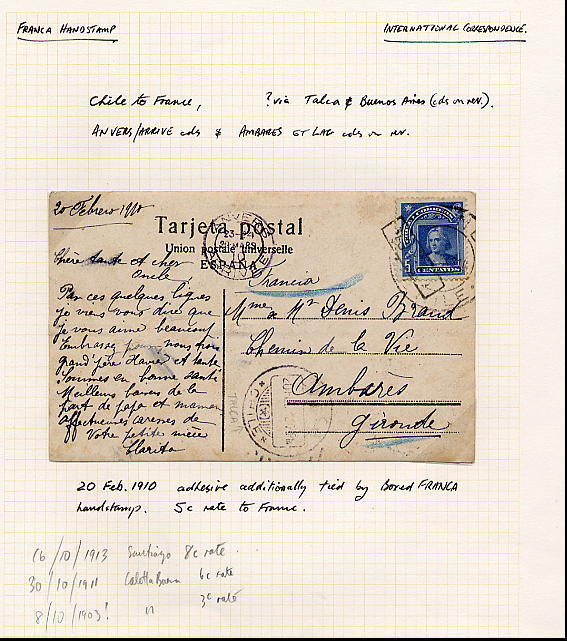 FRANCA HANDSTAMP
INTERNATIONAL CORRESPONDENCE.
Chile to France, ? via Talca & Buenos Aires (cds on rev.).
ANVERS/ARRIVE cds & AMBARES ET LAG cds on rev.
20 Febrero 1910
ANVERS
Tarjeta postal
Union postale universelle
ESPAÑA
5
CENTAVOS
CHILE
Francia
Chère tante et cher
Oncle,
Par ces quelques lignes
je viens vous dire que
Je vous aime beaucoup
Embrassez pour nous trois
Grand'père Xavier et tante
Sommes en bonne santé
Meilleurs baisers de la
part de papa et maman
Affectueuses caresses de
Votre petite nièce
Clarita
Mme & Mr Denis Braud
Chemin de la Vie
Ambarès
Gironde
CHILE
TALCA
20 Feb. 1910 adhesive additionally tied by Boxed FRANCA
handstamp. 5c rate to France.
16/10/1913 Santiago 8c rate
30/10/1911 Caletta Buena 6c rate
8/10/1903! " 3c rate